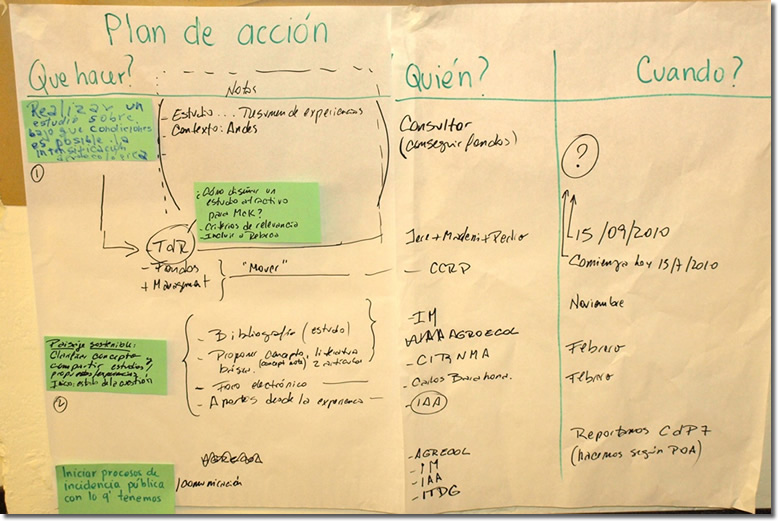 Plan de acción
Que hacer?
Notas
Quién?
Cuando?
Realizar un
estudio sobre
bajo que condiciones
es posible la
intensificación
①
- Estudio... Resumen de experiencias
- Contexto: Andes
Consultor
(conseguir fondos)
?
¿Cómo diseñar un
estudio atractivo
para McK?
- Criterios de relevancia
- Incluir a Rebeca
- TdR
Jere + Modeni + Pedro
15/09/2010
- Fondos
+ Management
"Mover"
- CCRP
Comienza hoy 15/7/2010
Noviembre
Paisaje sostenible:
Clarificar concepto
compartir estudios/
propuestas/experiencias/
Inicio: estado de la cuestión
②
- Bibliografía (estudio)
- Proponer concepto, literatura
básica (concept note) 2 artículos
- Foro electrónico
- Aportes desde la experiencia
- IM
AGROECOL
- CITBNMA
- Carlos Barahona.
- IAA
Febrero
Febrero
Iniciar procesos de
incidencia pública
con lo q' tenemos
/comunicación
- AGRECOL
- IM
- IAA
- ITDG
Reportamos CdP7
(hacemos según POA)